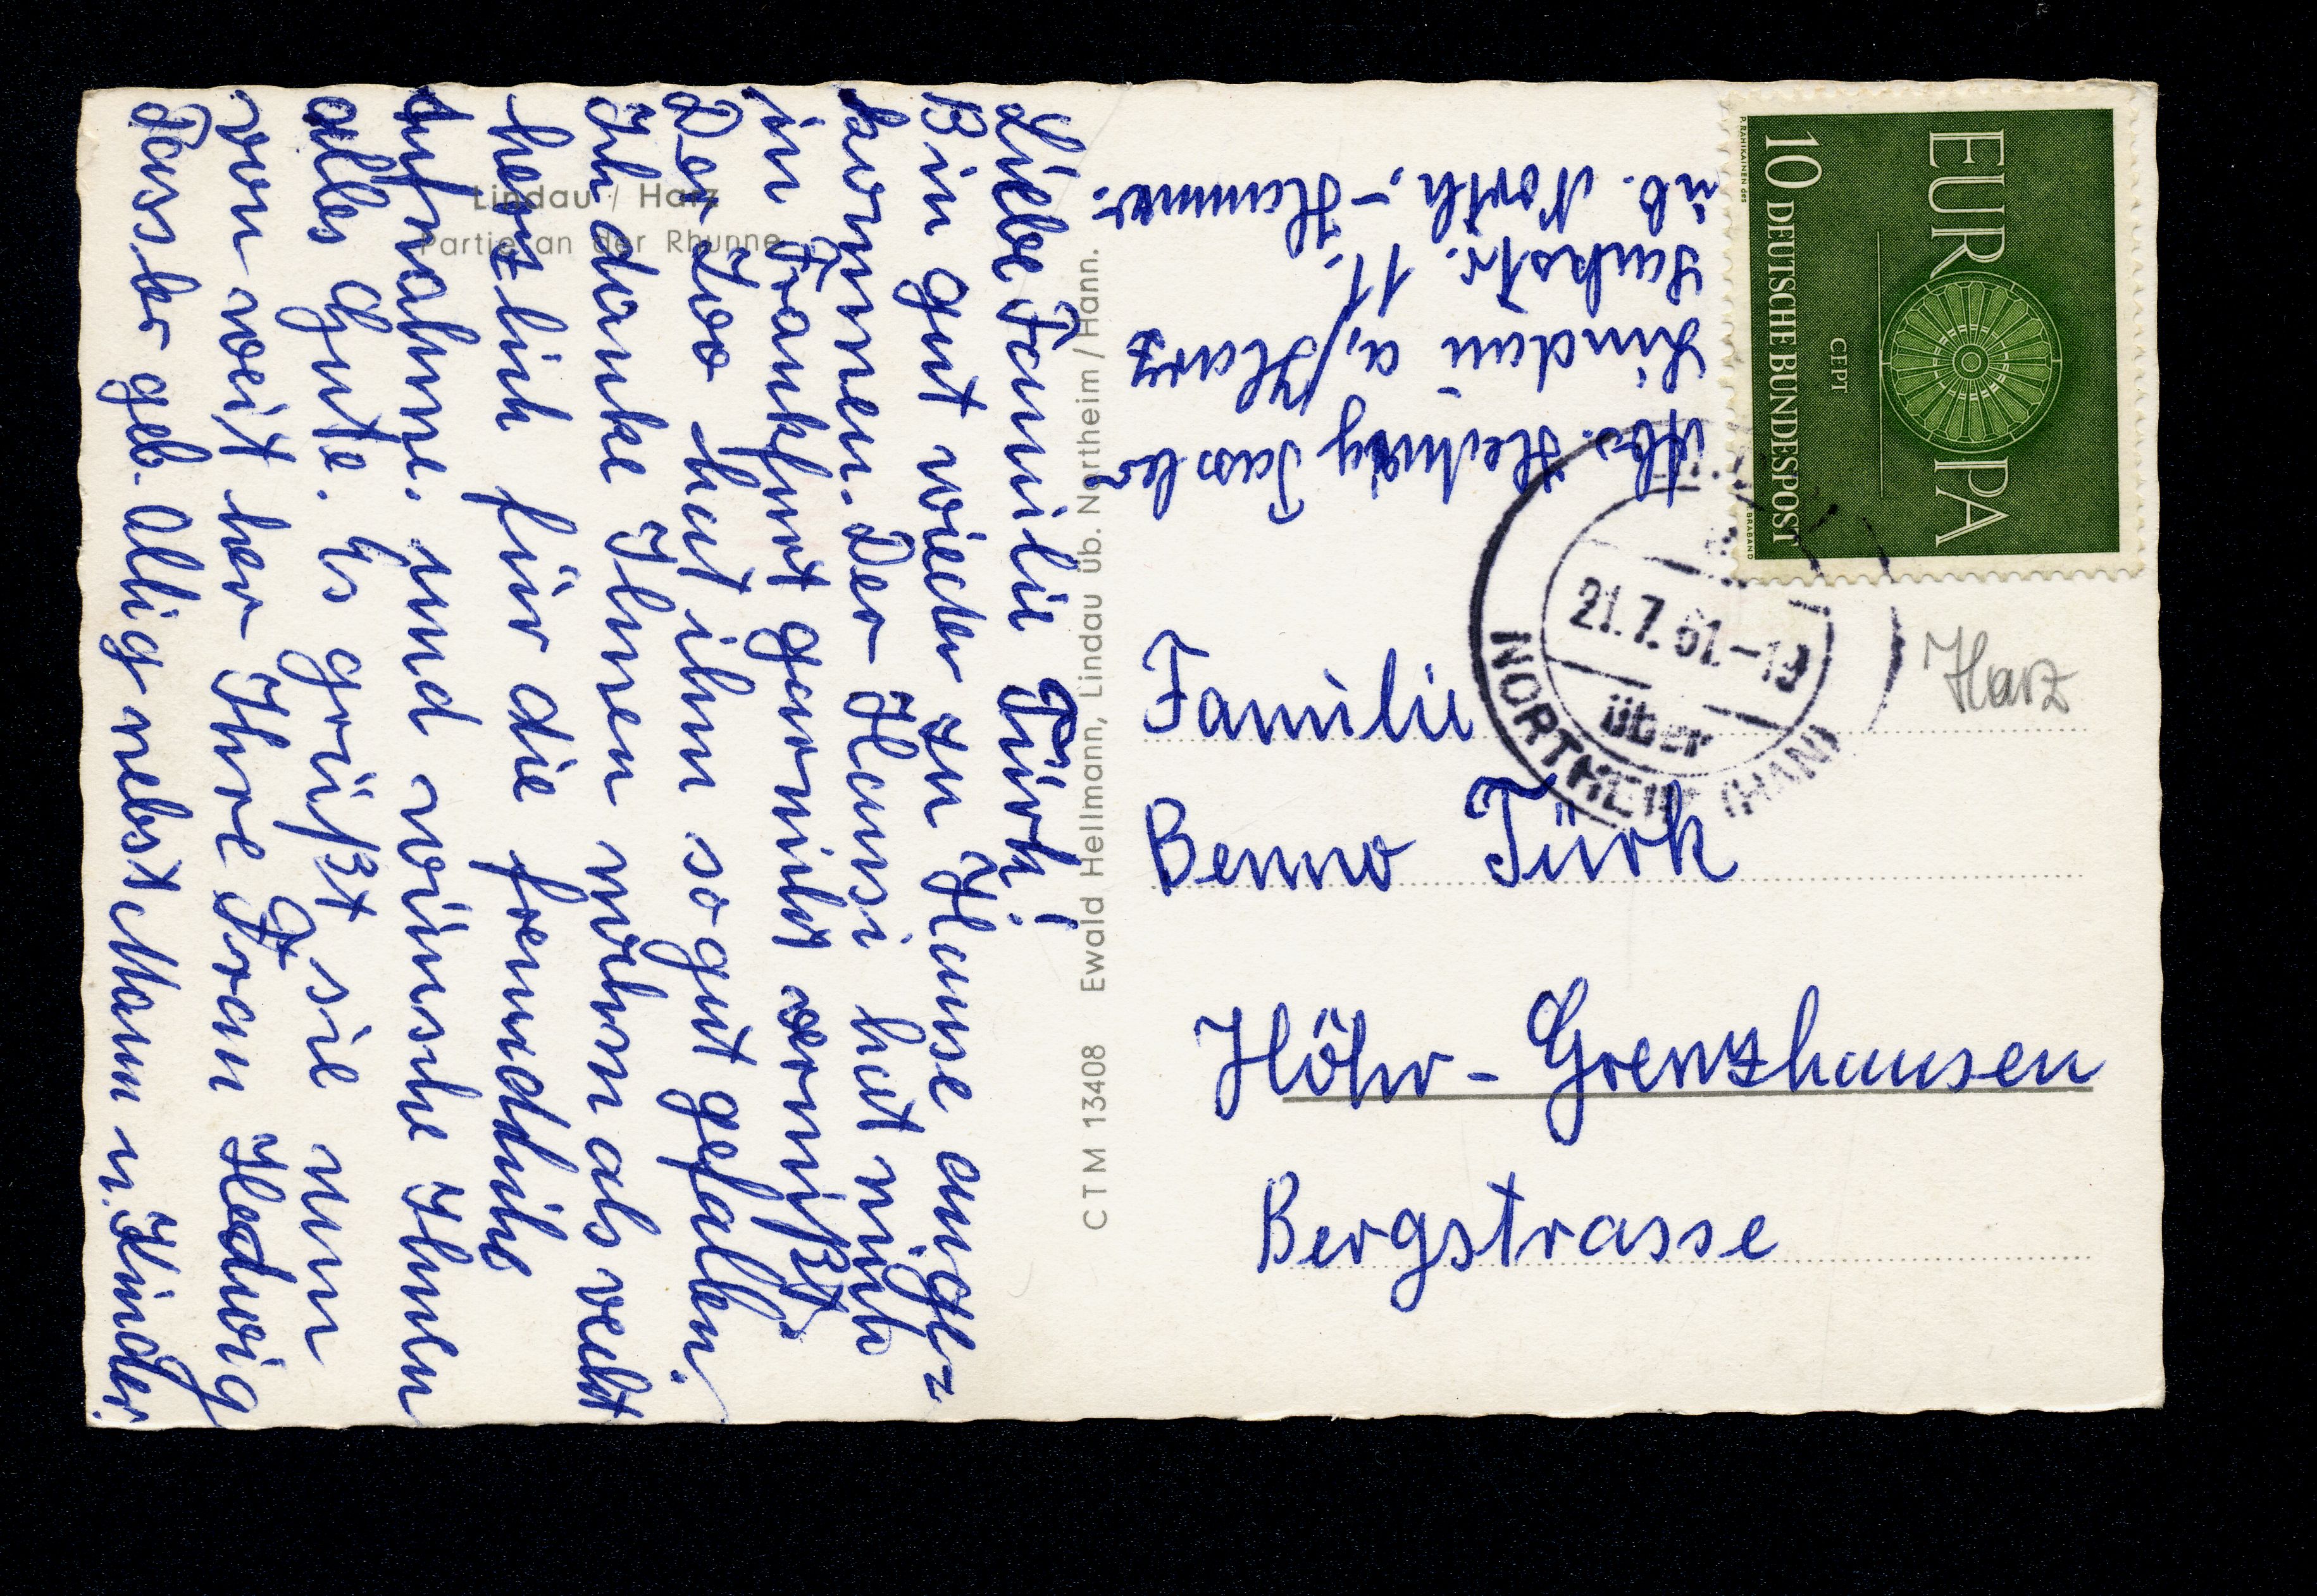 Liebe Familie Türk!
Bin gut wieder zu Hause ange=
kommen. Der Hansi hat mich
in Frankfurt garnicht vermißt.
Der Zoo hat ihm so gut gefallen.
Ich danke Ihnen nochmals recht
herzlich für die freundliche
Aufnahme. und wünsche Ihnen
alles Gute. Es grüßt sie nun
von weit her Ihre Frau Hedwig
Fassler geb. Allig nebst Mann u. Kinder.
Lindau / Harz
Partie an der Rhunne
CTM 13408 Ewald Hellmann, Lindau üb. Northeim / Hann.
Abs. Hedwig Fassler
Lindau a/Harz
11.
üb. North.- Hannver.
EUROPA
CEPT
10 DEUTSCHE BUNDESPOST
21.7.61.-19
über
NORTHEIM (HAN)
Harz
Familie
Benno Türk
Höhr - Grenzhausen
Bergstrasse